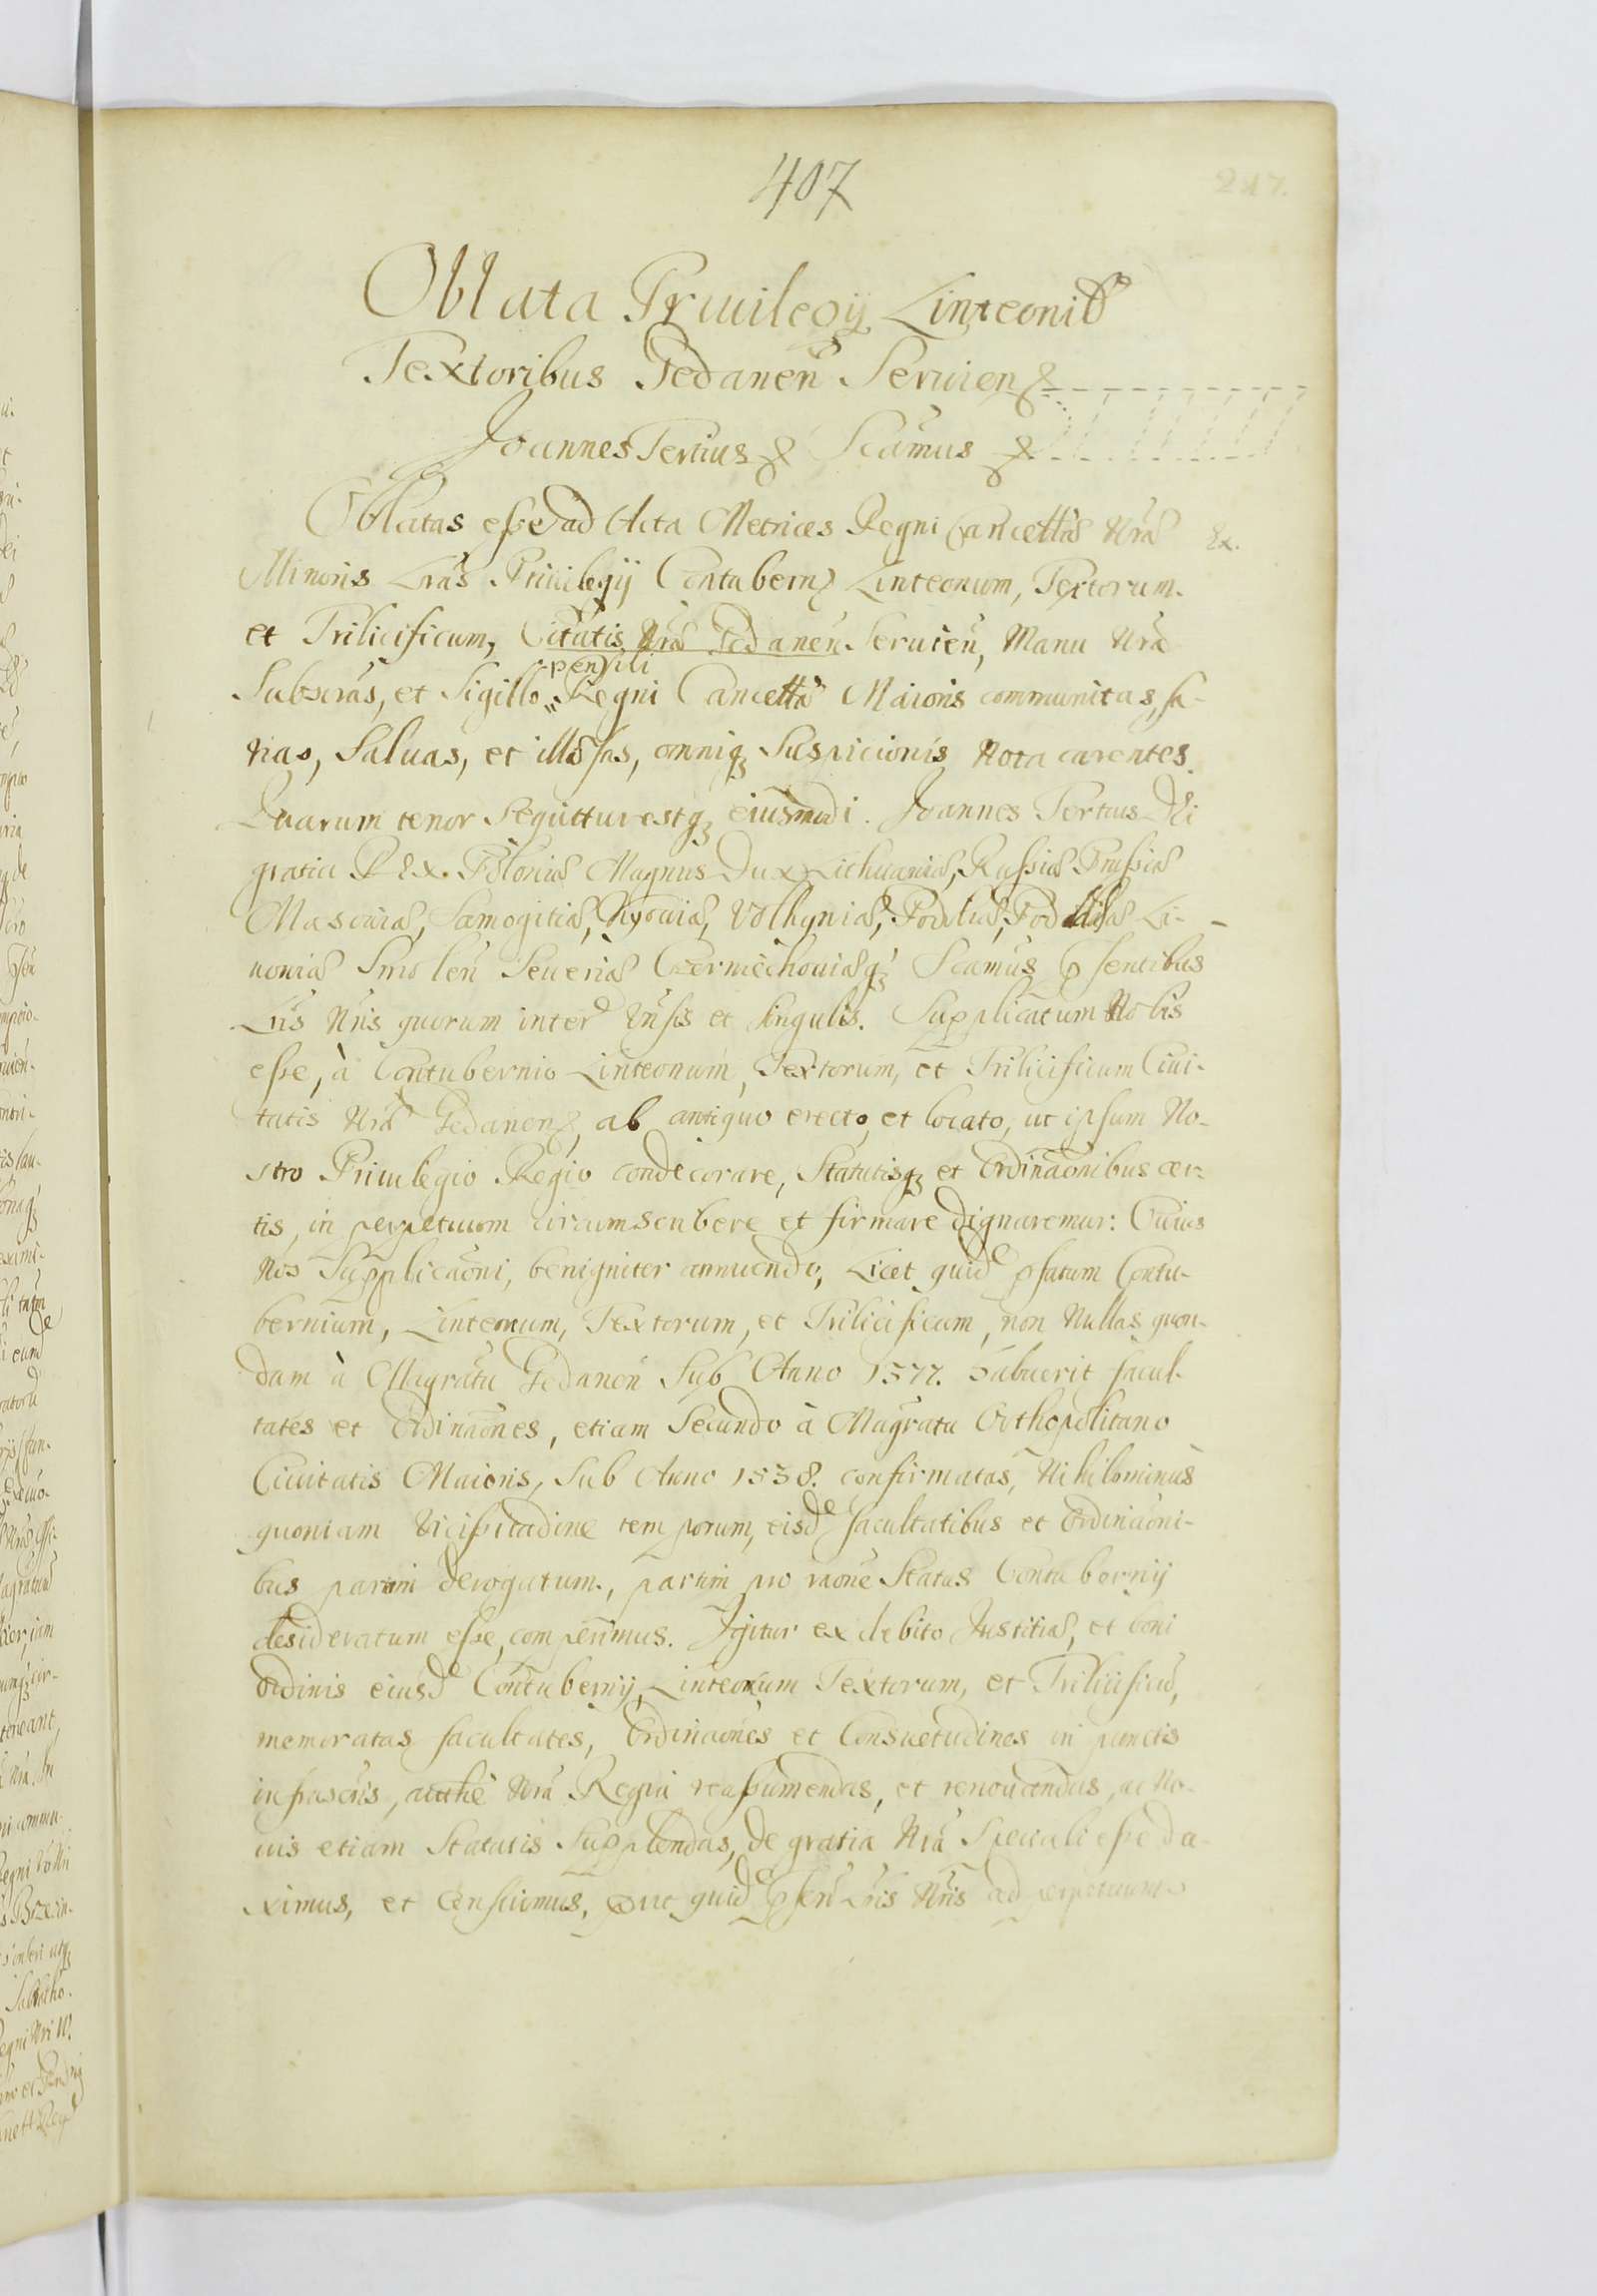 407
247.
Oblata Priuilegij Linteonib9
Textoribus Gedanen̄ Seruien
Joannes Tertius Scamus
Oblatas esse ad Acta Metrices Regni Cancellæ Nræ Ex.
Minoris Lrãs Priuilegij Contubern Linteonum, Textorum.
et Trilicificum, Ciuitatis Nræ Gedanen̄. Seruien̄, Manu Nra
pensili
Subscrãs, et Sigillo Regni Cancellæ Maioris communitas, sa-
nas, Saluas, et illæsas, omniq3 Suspicionis Nota carentes.
Quarum tenor Sequittur estq3 eiusmodi. Joannes Tertius Dei
gratia Rex. Poloniæ Magnus Dux Lithuaniæ, Russiæ Prussiæ
Masouiæ, Samogitiæ, Kyouiæ, Volhyniæ, Podoliæ, Podlachiæ Li-
uoniæ Smolen̄ Seueriæ Czerniechouiæq3 Scamus psentibus
Lrīs Nrīs quorum intered Vn̄sis et Singulis. Supplicatum Nobis
esse, à Contubernio Linteonum, Textorum, et Trilicificum Ciui-
tatis Nræ Gedanen, ab antiquo erecto, et locato, ut ipsum No-
stro Priuilegio Regio condecorare, Statutisq3 et Ordinãonibus cer-
tis, in perpetuum circumscribere et firmare dignaremur: Cuius
Nos Supplicãoni, benigniter annuendo, Licet quide pfatum Contu-
bernium, Linteonum, Textorum, et Trilicificum, non Nullas quon-
dam à Magrãtu Gedanen̄ Sub Anno 1577. habuerit facul-
tates et Ordinãones, etiam Secundo à Magratu Orthopolitano
Ciuitatis Maioris, Sub Anno 1538. confirmatas, Nihilominus
quoniam Vicissitudine temporum, eisde facultatibus et Ordinãoni-
bus partim derogatum., partim pro rãone Status Contubernij
desideratum esse, comperimus. Igitur ex debito Justitiæ, et boni
ordinis eiusde Contubernij, Linteonum Textorum, et Trilicificū,
memoratas facultates, Ordinãones et Consuetudines in punctis
infrascrīs, autthē Nrã Regia reassumendas, et renouandas, ac No-
uis etiam Statutis Supplendas, de gratia Nrã Speciali esse du-
ximus, et Censuimus, put quide psen̄ Lrīs Nrīs ad perpetuum